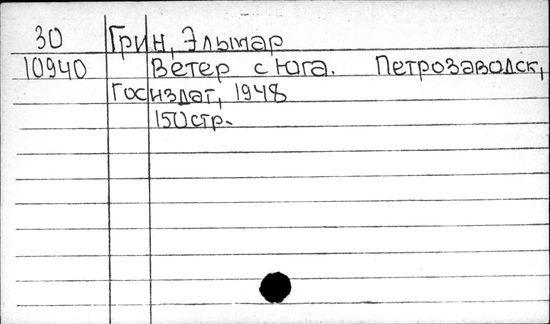 30 Грин, Эльмар
10940 Ветер с юга. Петрозаводск,
Госиздат, 1948
150стр.